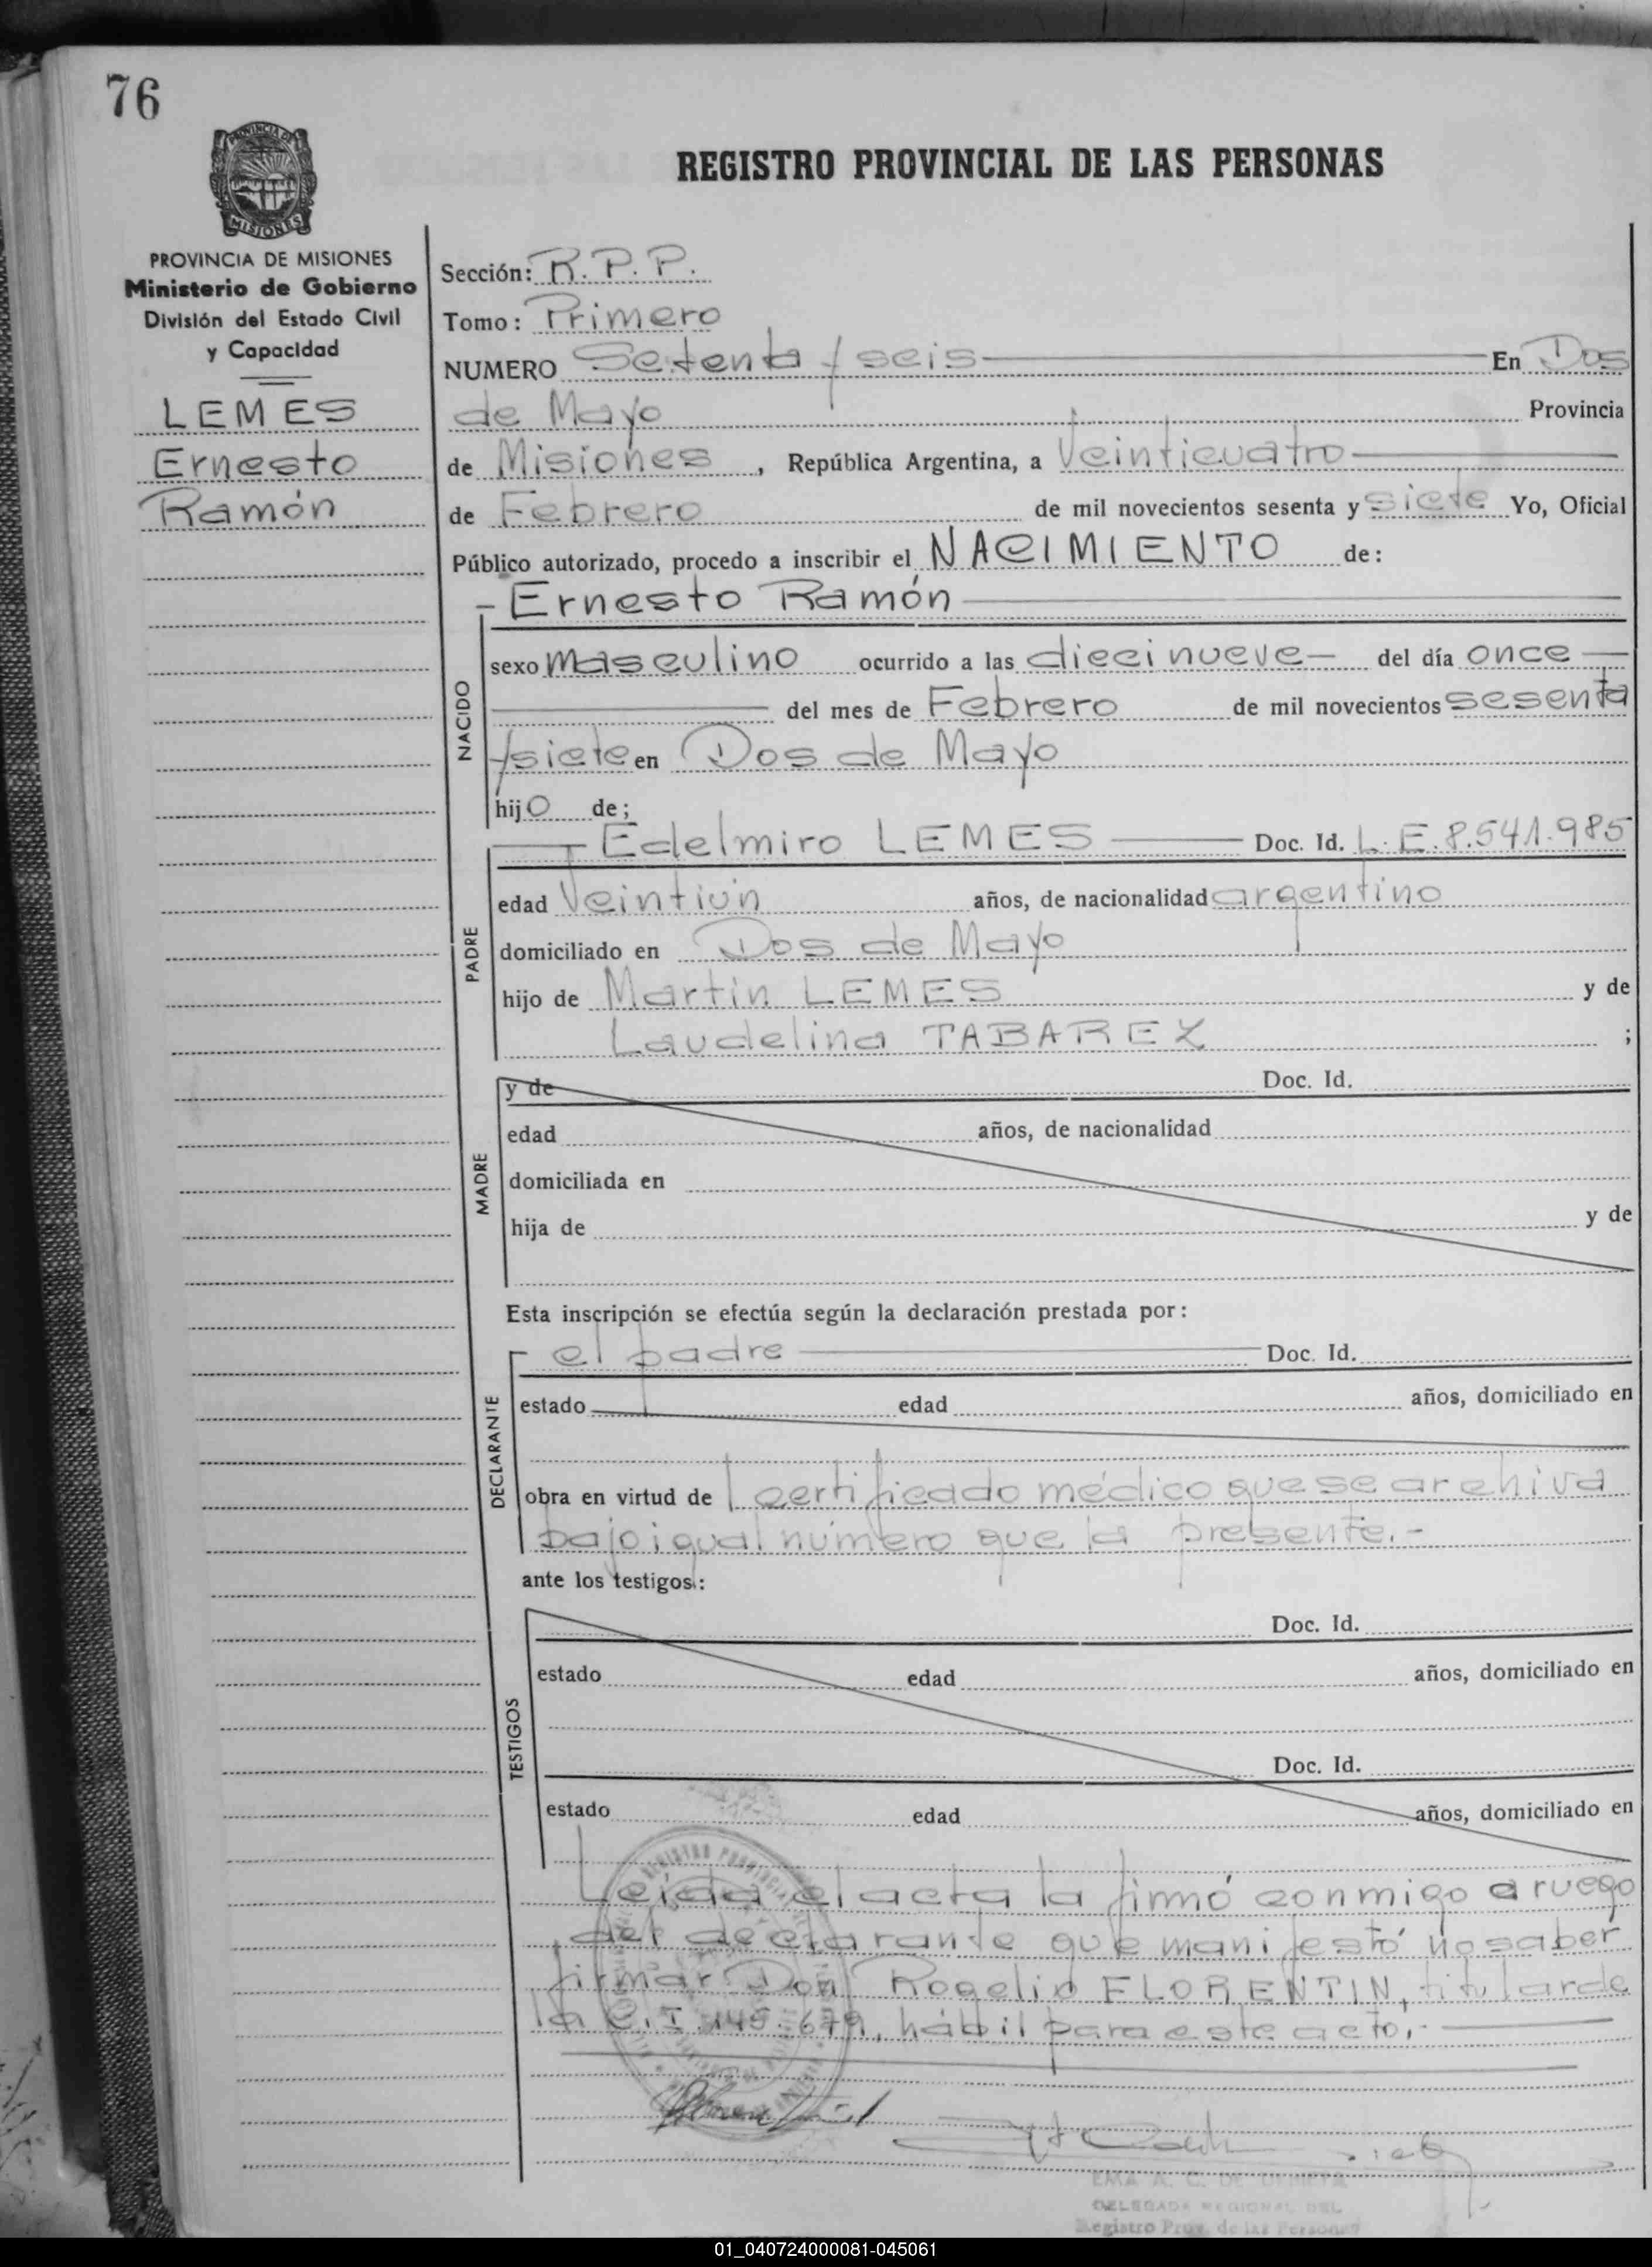 76
PROVINCIA DE
MISIONES
REGISTRO PROVINCIAL DE LAS PERSONAS
PROVINCIA DE MISIONES
Ministerio de Gobierno
División del Estado Civil
y Capacidad
LEMES
Ernesto
Ramón
Sección: R.P.P.
Tomo: Primero
NUMERO Setenta y seis En Dos
de Mayo Provincia
de Misiones, República Argentina, a Veinticuatro
de Febrero de mil novecientos sesenta y siete Yo, Oficial
Público autorizado, procedo a inscribir el NACIMIENTO de:
- Ernesto Ramón
NACIDO
sexo masculino ocurrido a las diecinueve - del día once
del mes de Febrero de mil novecientos sesenta
y siete en Dos de Mayo
hijo de;
PADRE
Edelmiro LEMES Doc. Id. L.E. 8.541.985
edad Veintiún años, de nacionalidad argentino
domiciliado en Dos de Mayo
hijo de Martin LEMES y de
Laudelina TABAREZ ;
MADRE
y de Doc. Id.
edad años, de nacionalidad
domiciliada en
hija de y de
Esta inscripción se efectúa según la declaración prestada por:
DECLARANTE
el padre Doc. Id.
estado edad años, domiciliado en
obra en virtud de certificado médico que se archiva
bajo igual número que la presente.-
ante los testigos:
TESTIGOS
Doc. Id.
estado edad años, domiciliado en
Doc. Id.
estado edad años, domiciliado en
Leida el acta la firmó conmigo a ruego
del declarante que manifestó no saber
firmar Don Rogelio FLORENTIN, titular de
la C.I. 145.679, hábil para este acto.-
DELEGADA REGIONAL DEL
Registro Prov. de las Personas
01_040724000081-045061